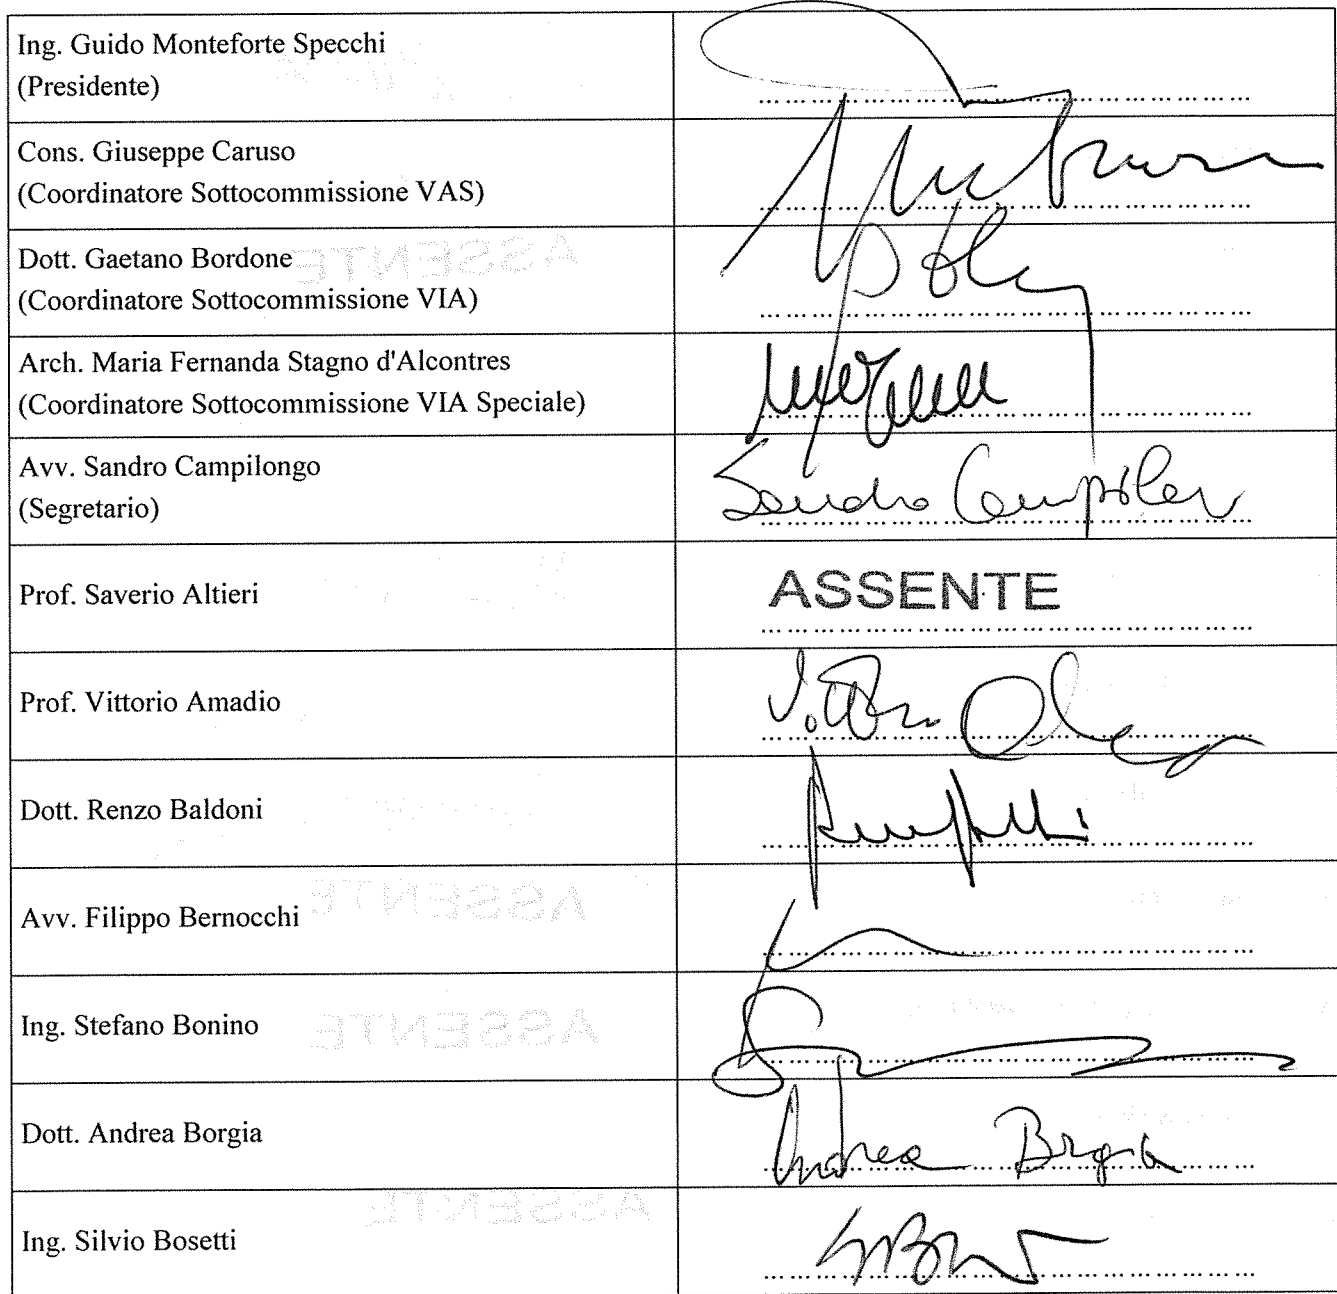 Ing. Guido Monteforte Specchi
(Presidente)
Cons. Giuseppe Caruso
(Coordinatore Sottocommissione VAS)
Dott. Gaetano Bordone
(Coordinatore Sottocommissione VIA)
Arch. Maria Fernanda Stagno d'Alcontres
(Coordinatore Sottocommissione VIA Speciale)
Avv. Sandro Campilongo
(Segretario)
Sandro
Prof. Saverio Altieri
ASSENTE
Prof. Vittorio Amadio
Dott. Renzo Baldoni
Avv. Filippo Bernocchi
Ing. Stefano Bonino
Dott. Andrea Borgia
Andrea Borgia
Ing. Silvio Bosetti